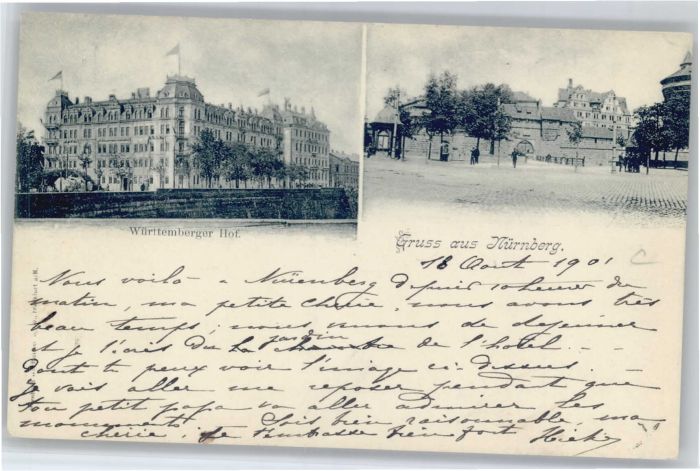 Württemberger Hof.
Gruss aus Nürnberg.
18 Aout 1901
Nous voilà a Nüremberg depuis 10 heures du
matin, ma petite cherie, nous avons très
beau temps; nous venons de dejeuner
et je t'ecris du jardin de l'hotel. —
dont tu peux voir l'image ci-dessus. —
je vais aller me reposer pendant que
ton petit papa va aller admirer les
monuments. Sois bien raisonnable, ma
cherie, je t'embrasse bien fort